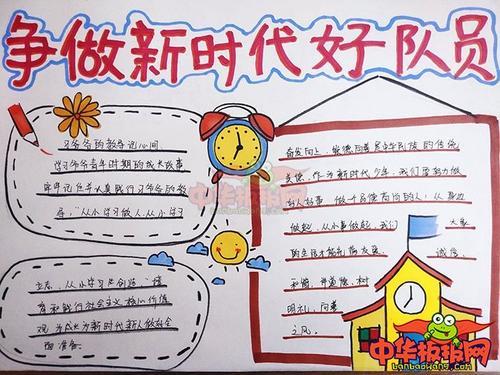 争做新时代好队员
习爷爷的教导记心间
学习习爷爷青年时期的成长故事
牢牢记住并认真践行习爷爷的教
导，“从小学习做人，从小学习
立志，从小学习共创造，”培
育和践行社会主义核心价值
观，为成长为新时代新人做好全
面准备。
奋发向上，崇德向善是中华民族的传统
美德，作为新时代少年，我们要努力做
好人好事，做一个品德高尚的人，从身边
做起，从小事做起，我们
大家
的生活才能充满友爱
诚信，
和谐，并道德，树
明礼，同善
之风。
中华板报网
中华板报网
banbaowang.com